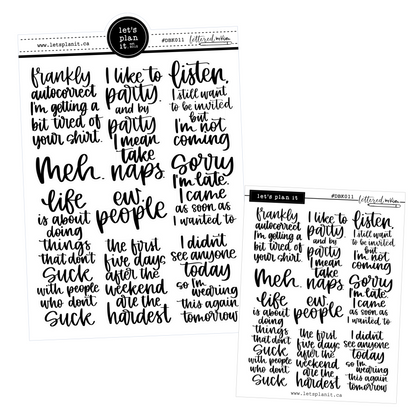 let's
plan
it
www.letsplanit.ca
#DBK011
lettered
frankly
autocorrect
I'm getting a
bit tired of
your shirt.
I like to
party.
and by
party
I mean
take
naps.
listen,
I still want
to be invited
but
I'm not
coming
meh.
Sorry
I'm late.
I came
as soon as
I wanted to
life
is about
doing
things
that don't
suck
with people
who don't
suck.
ew.
people
the first
five days
after the
weekend
are the
hardest
I didn't
see anyone
today
so I'm
wearing
this again
tomorrow
let's plan it
#DBK011
lettered
frankly
autocorrect
I'm getting a
bit tired of
your shirt.
I like to
party.
and by
party
I mean
take
naps.
listen,
I still want
to be invited
but
I'm not
coming
meh.
Sorry
I'm late.
I came
as soon as
I wanted to
life
is about
doing
things
that don't
suck
with people
who don't
suck.
ew.
people
the first
five days
after the
weekend
are the
hardest
I didn't
see anyone
today
so I'm
wearing
this again
tomorrow
www.letsplanit.ca